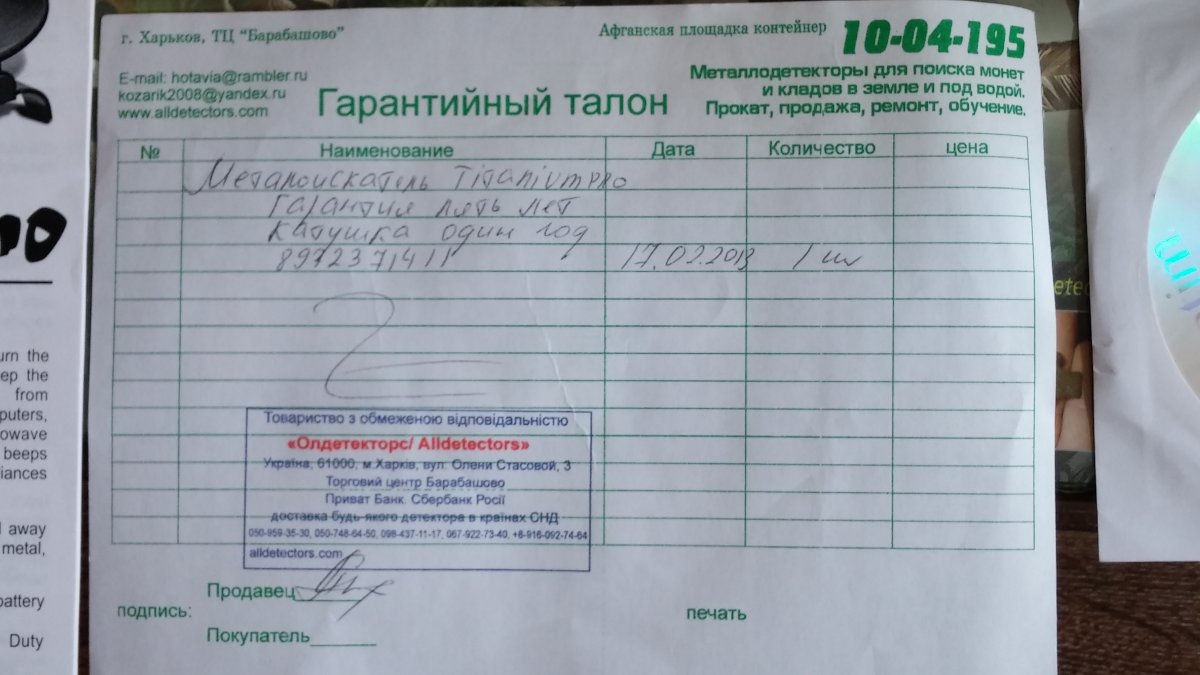 г. Харьков, ТЦ "Барабашово"
Афганская площадка контейнер 10-04-195
E-mail: hotavia@rambler.ru
kozarik2008@yandex.ru
www.alldetectors.com
Гарантийный талон
Металлодетекторы для поиска монет
и кладов в земле и под водой.
Прокат, продажа, ремонт, обучение.
№ Наименование Дата Количество цена
Металоискатель TITANIUM PRO
Гарантия пять лет
Катушка один год
8972371411 17.02.2013 1 шт
Товариство з обмеженою відповідальністю
«Олдетекторс/ Alldetectors»
Україна, 61000, м.Харків, вул. Олени Стасовой, 3
Торговий центр Барабашово
Приват Банк. Сбербанк Росії
доставка будь-якого детектора в країнах СНД
050-959-35-30, 050-748-64-50, 098-437-11-17, 067-922-73-40, +8-916-092-74-64
alldetectors.com
Продавец
подпись:
печать
Покупатель
urn the
ep the
from
puters,
owave
beeps
iances
away
metal,
battery
Duty